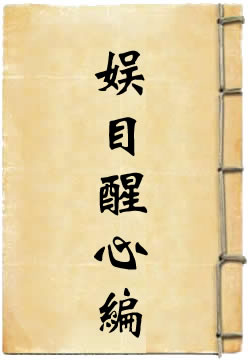 娱目醒心編